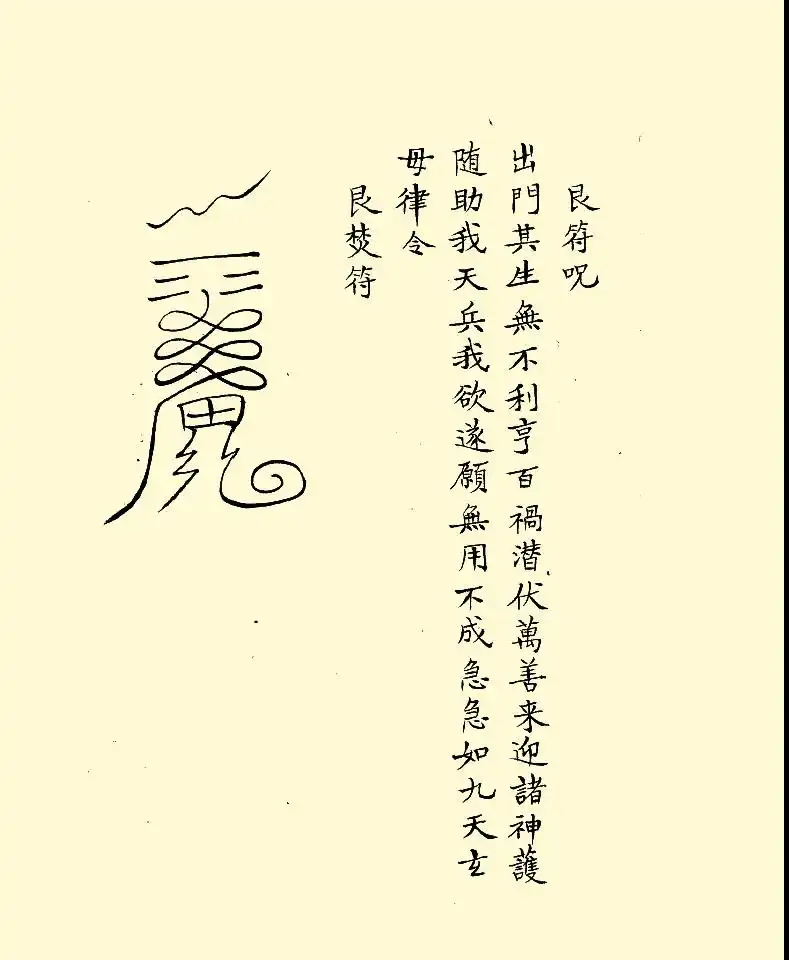 艮符呪
出門其生無不利亨百禍潜伏萬善来迎諸神護
随助我天兵我欲遂願無用不成急急如九天玄
毋律令
艮焚符